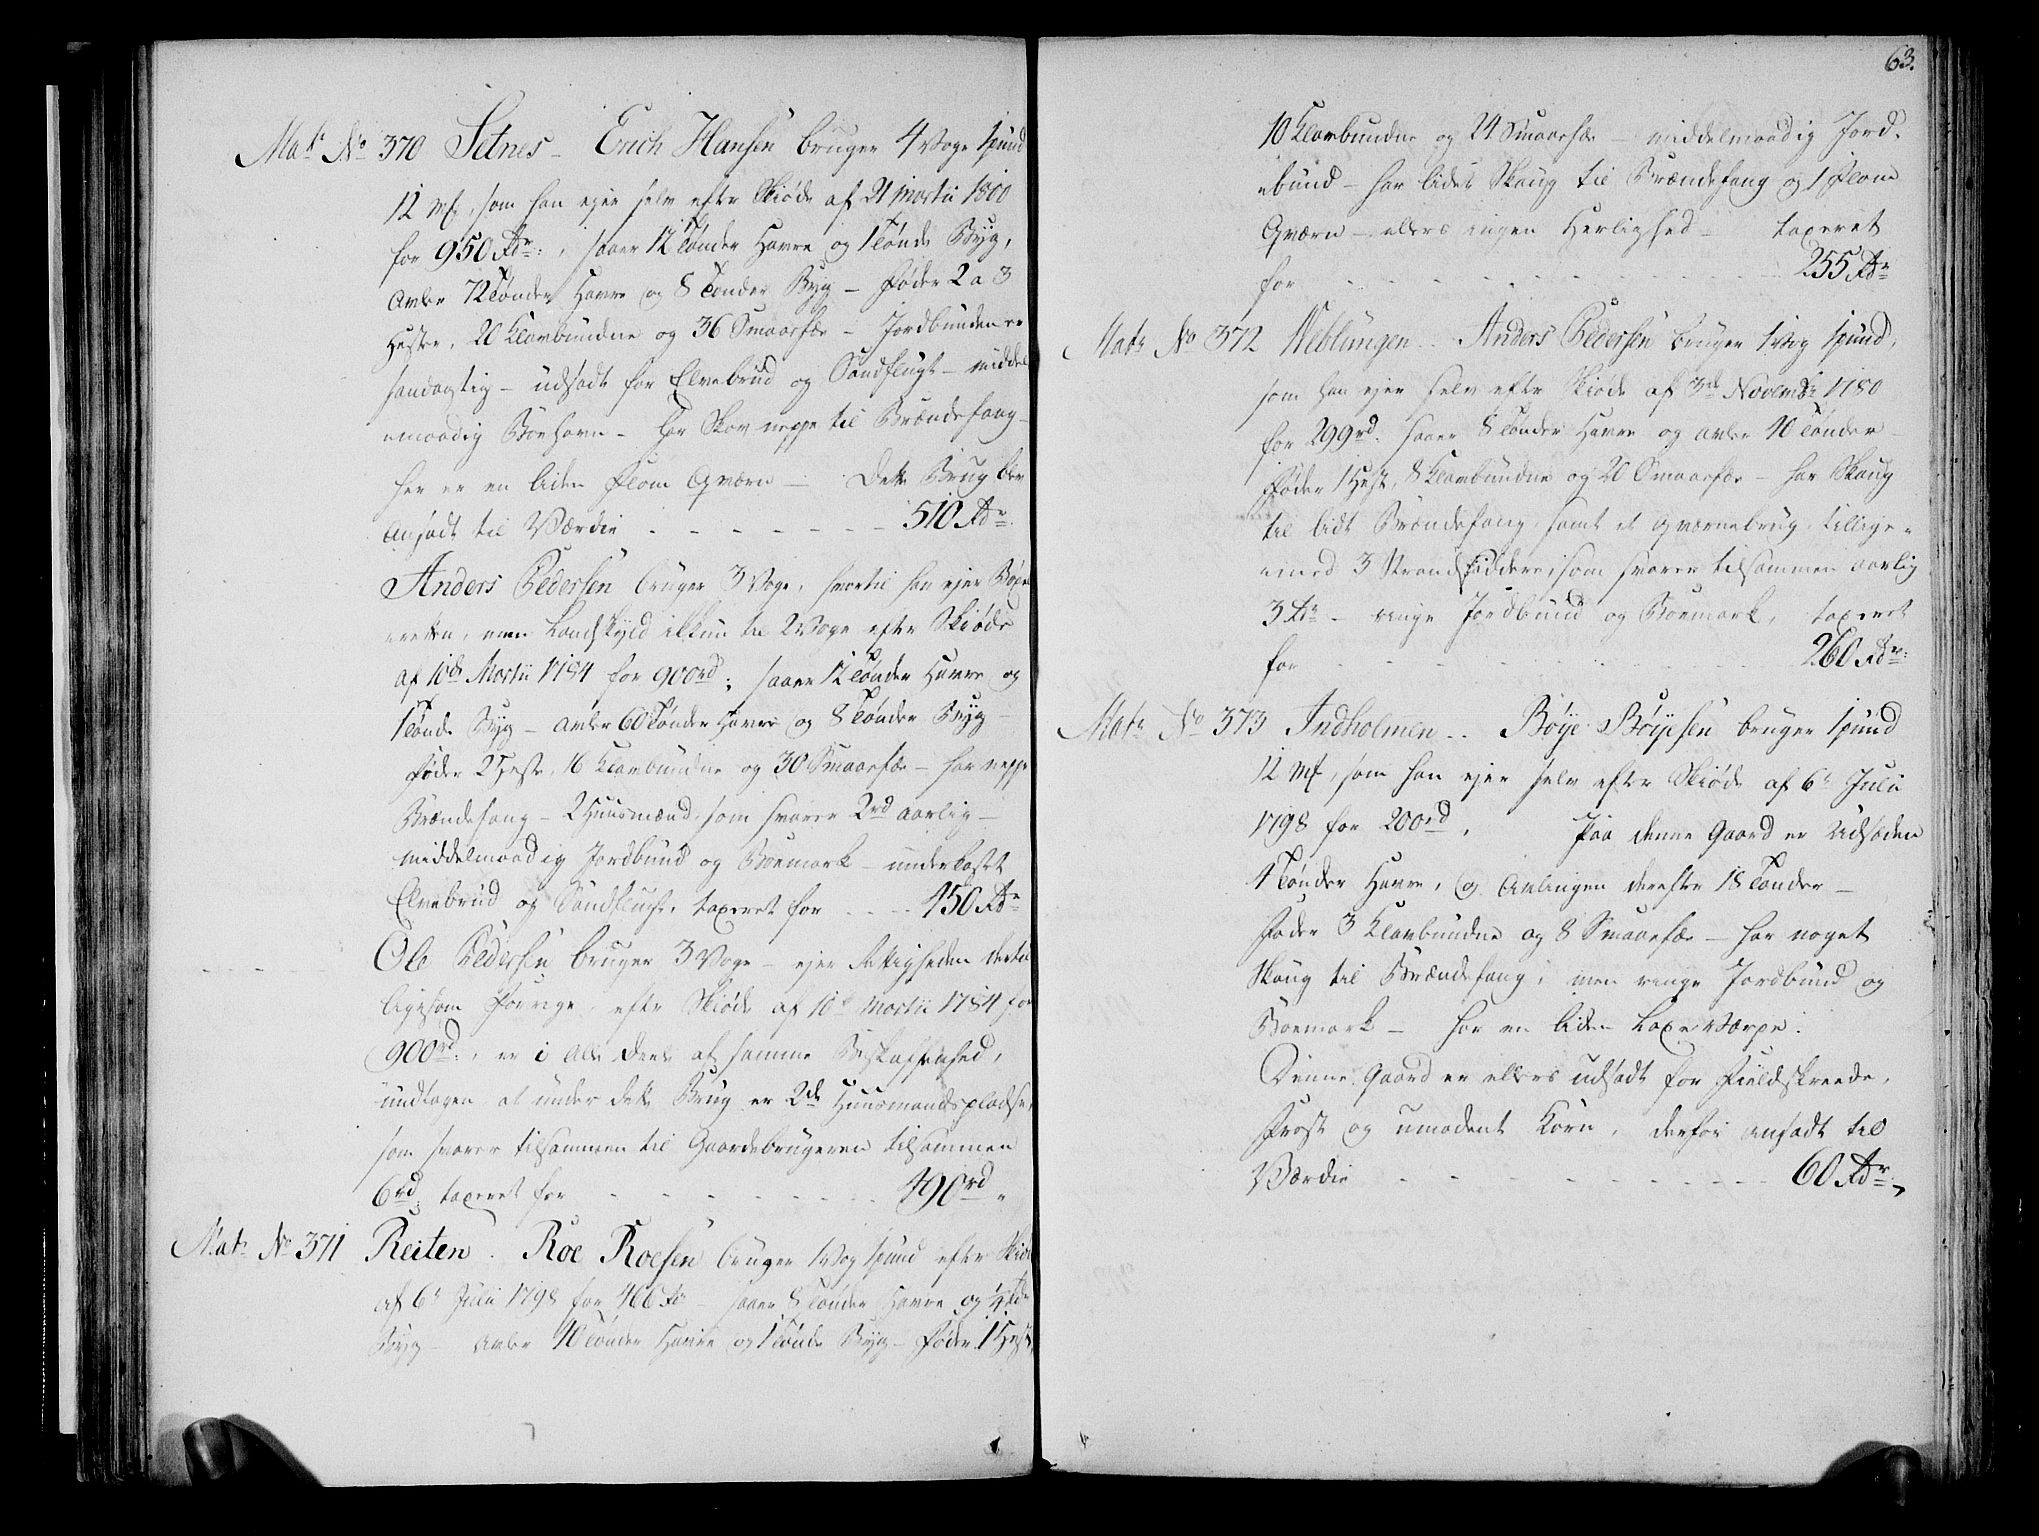 Mat: No 370 Setnes - Erich Hansen bruger 4 Voge 1 pund
12 mk, som han ejer selv efter Skiøde af 21 Martii 1800
for 950 Rdr:, saaer 12 Tønder Havre og 1 Tønde Byg,
avler 72 Tønder Havre og 8 Tønder Byg - føder 2 a 3
Heste, 20 Klovbundne og 36 Smaafæe - Jordbunden er
sandagtig - udsadt for Elvebrud og Sandflugt - middel
maadig Boehavn - har Skov neppe til Brændefang -
her er en liden flom Qværn - Dette Brug blev
ansadt til Værdie - - - - - - - 510 Rdr.
Anders Pedersen bruger 3 Voge, hvortil han ejer Böxel
retten, men Landskyld ikkun til 2 Voge efter Skiøde
af 10de Martii 1784 for 900rd; saaer 12 Tønder Havre og
1 Tønde Byg - avler 60 Tønder Havre og 8 Tønder Byg -
føder 2 Heste, 16 Klovbundne og 30 Smaafæe - har neppe
Brændefang - 2 Huusmænd, som svarer 2rd aarlig -
middelmaadig Jordbund og Boemark - underkastet
Elvebrud og Sandflugt, taxeret for - - - 450 Rdr
- - - Ole Pedersen bruger 3 Voge - ejer Rettigheden dertil
ligesom Forrige, efter Skiøde af 10de Martii 1784 for
900rd:, er i alle Deele af samme Beskaffenhed,
undtagen at under dette Brug er 2de Huusmandspladse,
som svarer tilsammen til Gaardebrugeren tilsammen
6rd; taxeret for - - - - - - - 490rd "
Mat: No 371 Reiten. Roe Roesen bruger 1 Vog 1 pund efter Skiøde
af 6te Julii 1798 for 466 Rd - saaer 8 Tønder Havre og 1/4 Tde
Byg - avler 40 Tønder Havre og 1 Tønde Byg - føder 1 Hest,
63.
10 Klovbundne og 24 Smaafæe - middelmaadig Jord-
bund - har lidet Skoug til Brændefang og 1 flom
Qværn - ellers ingen Herlighed - taxeret
for - - - - - - - - - 255 Rdr
Mat: No 372 Neblungen - Anders Pedersen bruger 1 Vog 1 pund,
som han ejer selv efter Skiøde af 3de Novembr 1780
for 299rd. saaer 8 Tønder Havre og avler 40 Tønder -
føder 1 Hest, 8 Klovbundne og 20 Smaafæe - har Skoug
til lidt Brændefang, samt et Qværnebrug, tillige-
med 3 Strandsiddere, som svarer tilsammen aarlig
3 Rdr - ringe Jordbund og Boemark, taxeret
for - - - - - - - - - 260 Rdr.
Mat: No 373 Indholmen - Bøye Bøyesen bruger 1 pund
12 mk, som han ejer selv efter Skiøde af 6te Julii
1798 for 200rd, Paa denne Gaard er Udsæden
4 Tønder Havre, og Avlingen derefter 18 Tønder -
føder 3 Klovbundne og 8 Smaafæe - har noget
Skoug til Brændefang, men ringe Jordbund og
Boemark - har en liden Laxe Værpe.
Denne Gaard er ellers udsadt for Fieldskreede,
Frost og umodent Korn, derfor ansadt til
Værdie - - - - - - - - - 60 Rdr.